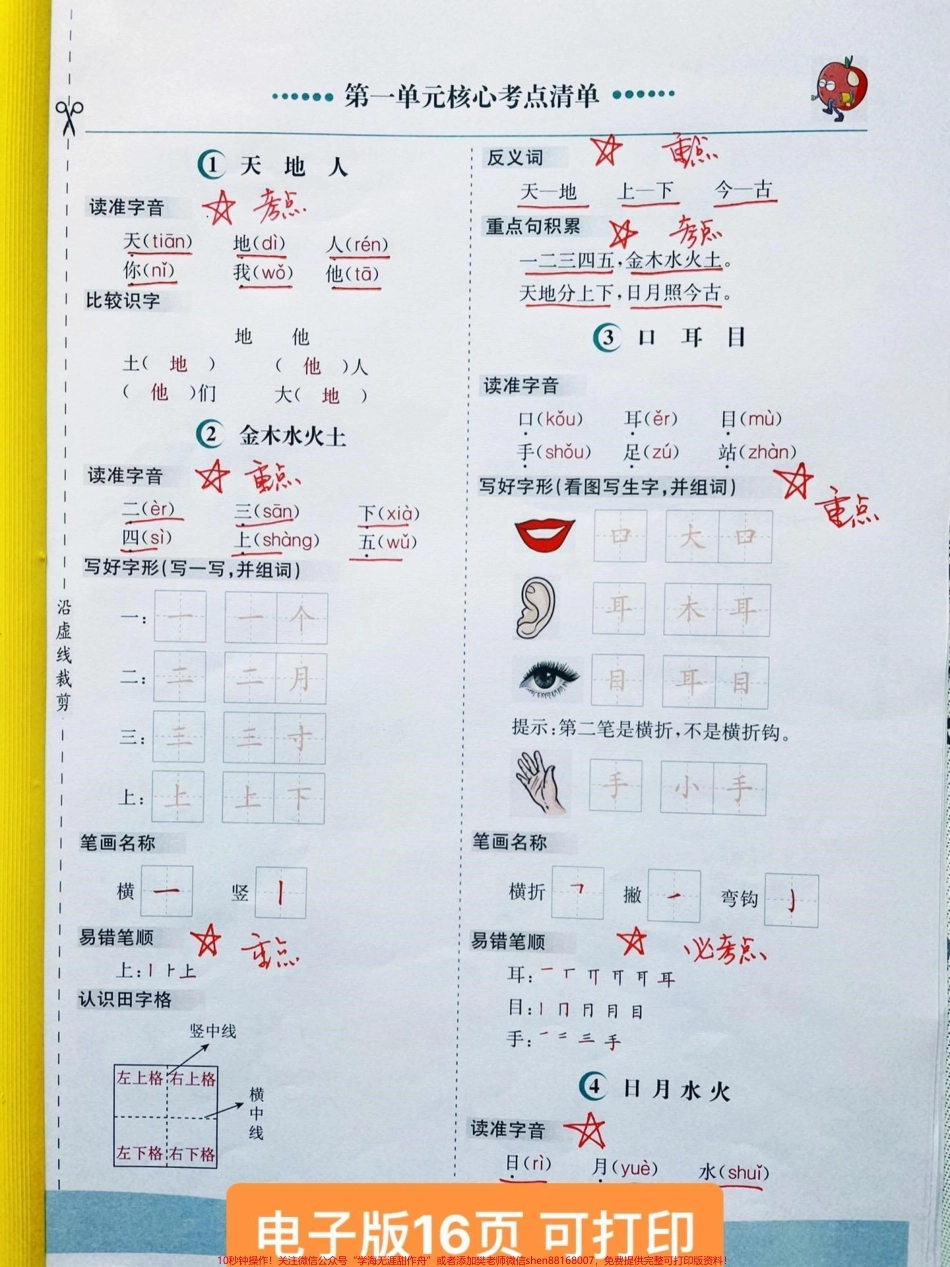 第一单元核心考点清单
1 天 地 人
读准字音 ☆ 考点
天(tiān) 地(dì) 人(rén)
你(nǐ) 我(wǒ) 他(tā)
比较识字
地 他
土( 地 ) ( 他 )人
( 他 )们 大( 地 )
2 金木水火土
读准字音 ☆ 重点
二(èr) 三(sān) 下(xià)
四(sì) 上(shàng) 五(wǔ)
写好字形(写一写,并组词)
一: 一 一个
二: 二 二月
三: 三 三寸
上: 上 上下
笔画名称
横 一 竖 丨
易错笔顺 ☆ 重点
上:丨 ⺊ 上
认识田字格
竖中线
左上格 右上格
横中线
左下格 右下格
沿虚线裁剪
反义词 ☆ 重点
天—地 上—下 今—古
重点句积累 ☆ 考点
一二三四五,金木水火土。
天地分上下,日月照今古。
3 口 耳 目
读准字音
口(kǒu) 耳(ěr) 目(mù)
手(shǒu) 足(zú) 站(zhàn)
写好字形(看图写生字,并组词) ☆ 重点
口 大口
耳 木耳
目 耳目
提示:第二笔是横折,不是横折钩。
手 小手
笔画名称
横折 ㇕ 撇 ㇒ 弯钩 ㇁
易错笔顺 ☆ 必考点
耳:
目:
手:
4 日月水火
读准字音 ☆
日(rì) 月(yuè) 水(shuǐ)
电子版16页 可打印
10秒钟操作！关注微信公众号“学海无涯甜作舟”或者添加樊老师微信shen88168007，免费提供完整可打印版资料！